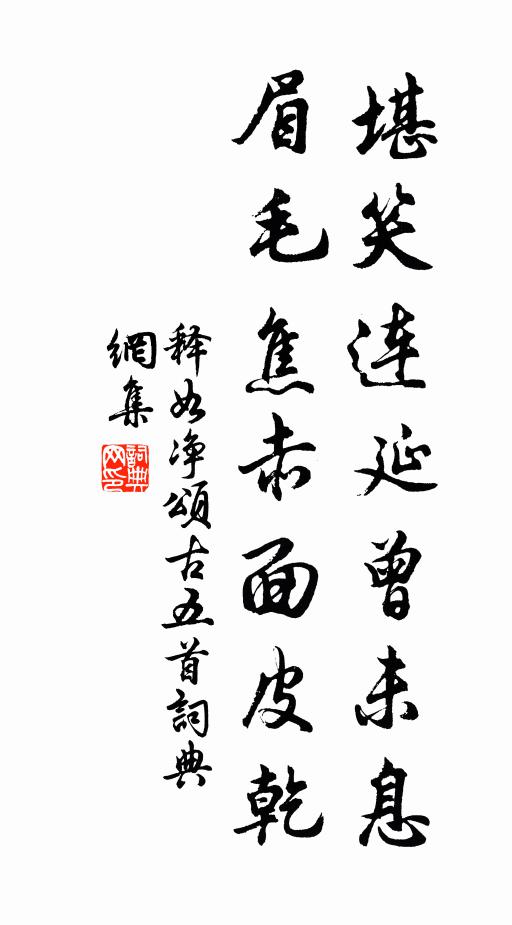 堪笑连延曾未息
眉毛焦赤面皮乾
释如净頌古五首詞典
網集
詞典网印